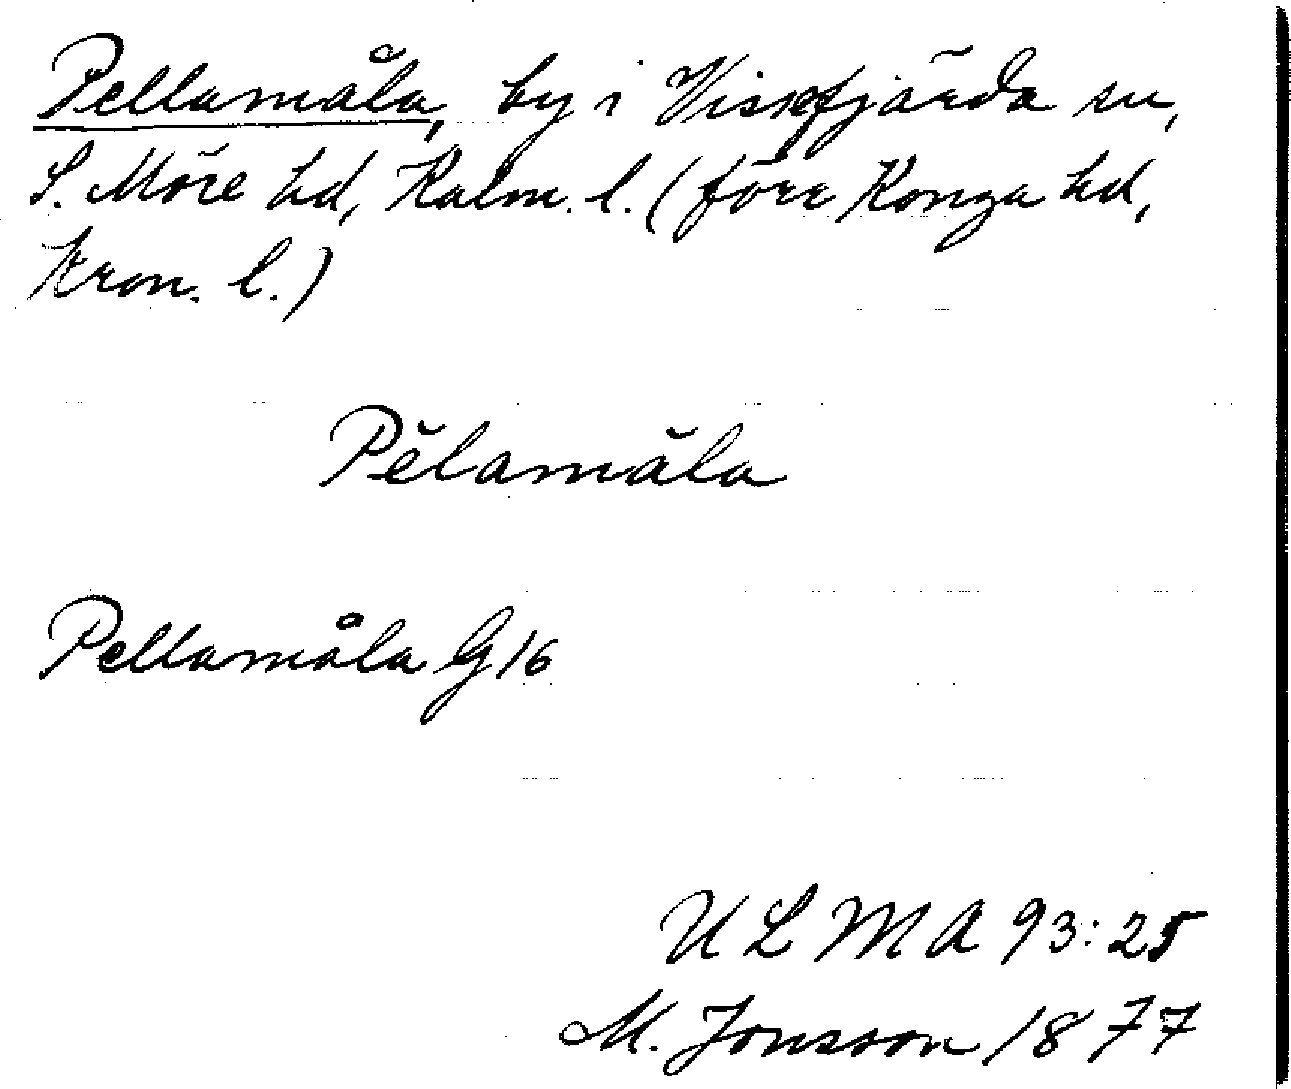 Pellamåla, by i Vissefjärda sn,
S. Möre hd, Kalm. l. (förr Konga hd,
Kron. l.)
Pĕlamåla
Pellamåla G 16
ULMA 93:25
M. Jonsson 1877